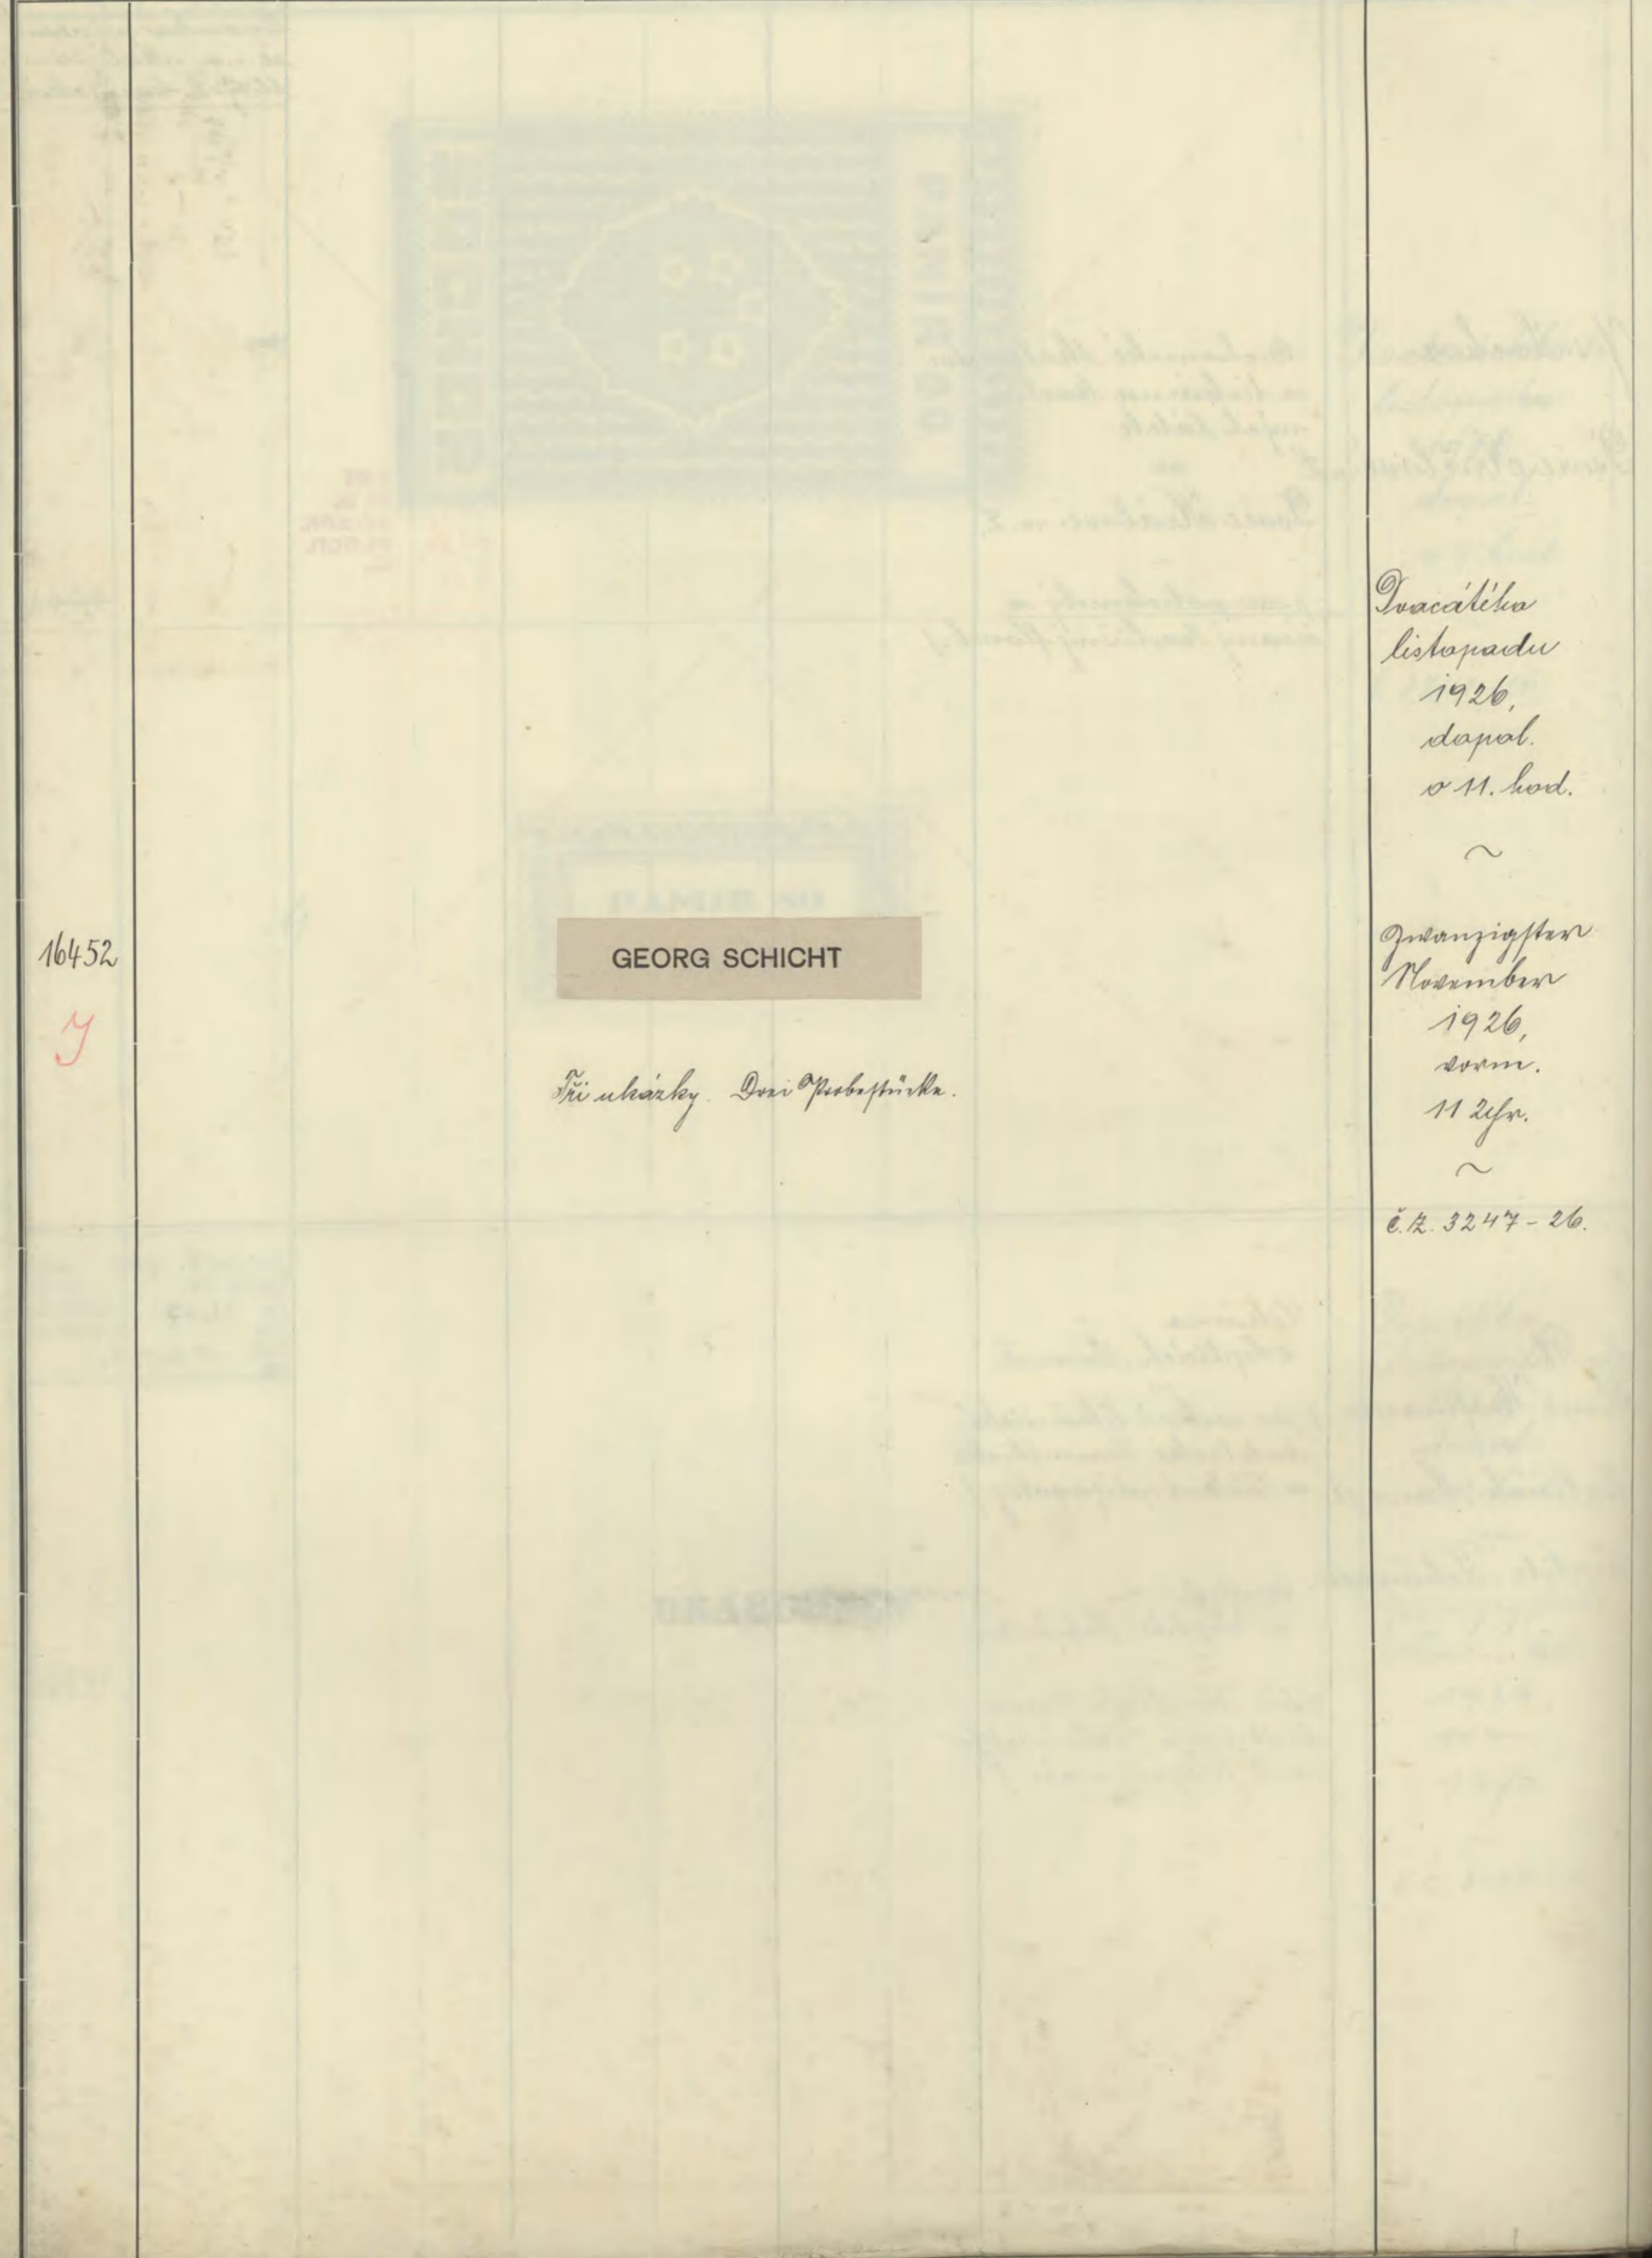 16452
J
GEORG SCHICHT
Tři ukázky. Drei Probestücke.
Dvacátého
listopadu
1926,
dopol.
o 11. hod.
~
Zwanzigster
November
1926,
vorm.
11 Uhr.
~
č.z. 3247-26.